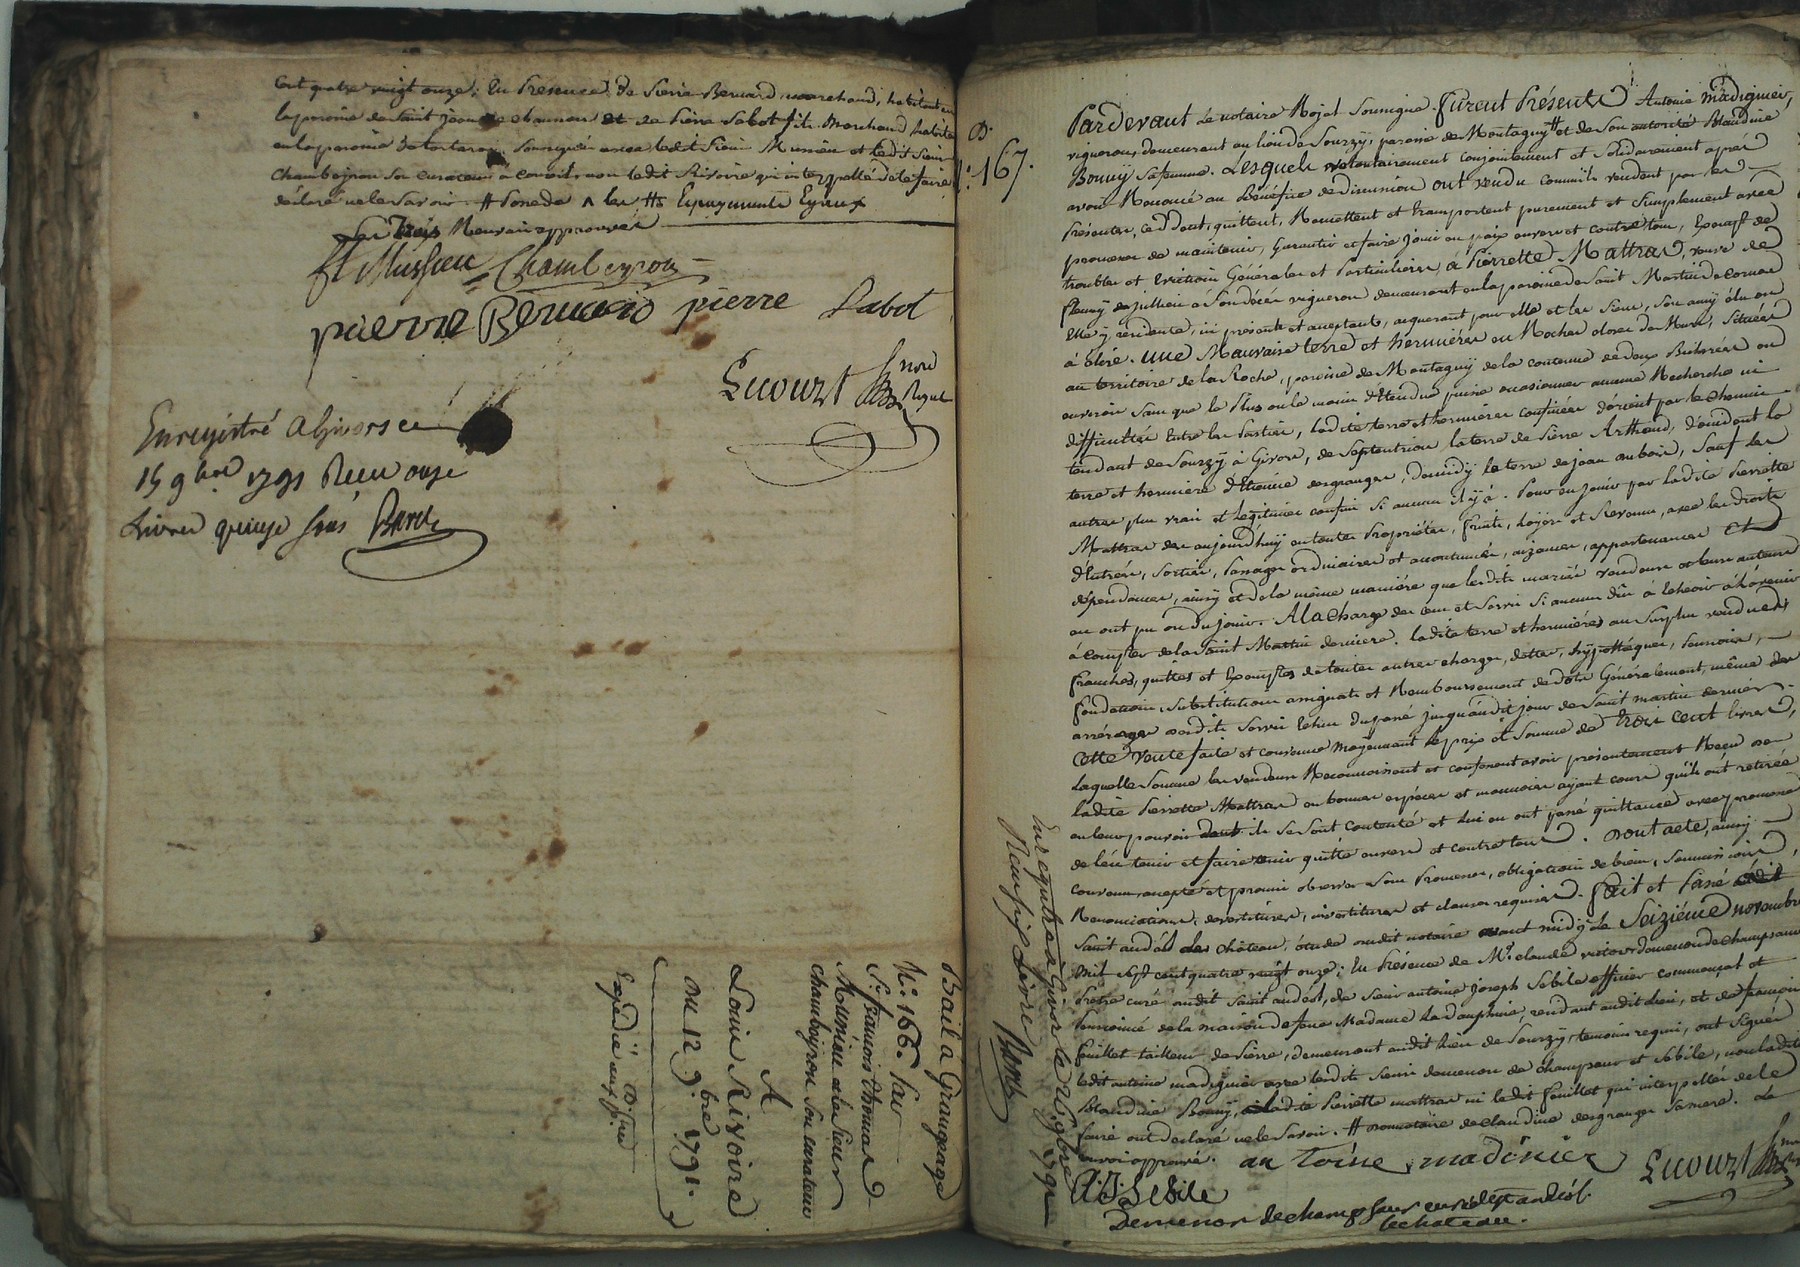 Cent quatre vingt onze; En Présence de Pierre Bernard marchand, habitant en
la paroisse de Saint Jean de chaussan et de Pierre Sabot fils Marchand habitant
en la paroisse de tartaras soussignés avec ledit Sieur Mussieu et ledit Sieur
Chambeyron son curateur à conseils, non ledit Rivoire qui interpellé de le faire a
déclaré ne le Savoir
les trois Renvois approuvés
ft Mussieu Chambeyron
pierre Bernard pierre Sabot
Lecourt nore Royal
Enregistré a Givors ce
15 9bre 1791 Reçu onze
Livres quinze sous Barel
Bail à Grangeage
N.° 166. par
Sr. françois thomas
Mussieu et le Sieur
chambeyron son curateur
A
Louis Rivoire
Du 12 9.bre 1791.
Expédié
D.
N.° 167.
Pardevant Le notaire Royal Soussigné. furent Présents Antoine madignier,
vigneron, demeurant au lieu de Sourzÿ, paroisse de Montagny # et de Son autorité Blandine
Bonnÿ Sa femme. Lesquels volontairement conjointement et Solidairement après
avoir Renoncé au Bénéfice de division ont vendu comme ils vendent par les
Présentes, cèddent, quittent, Remettent et transportent purement et Simplement avec
promesse de maintenir, garantir et faire Jouir en paix envers et contre tous, Exempt de
troubles et Evictions Générales et Particulières, à Pierrette Mattras, veuve de
fleury dejullieu a Son décès vigneron demeurant en la paroisse de Saint Martin de cornas
Elle ÿ résidente, ici présente et acceptante, acquerant pour elle et les Siens, Son amÿ élu ou
à Elire. une Mauvaise terre et hermières ou Rocher closes de Murs, Situées
au territoire de la Roche, paroisse de Montagnÿ de la contenue de deux Bicherées ou
environ Sans que le Plus ou le moins d'étendue puisse occasionner aucune Recherche ni
difficultés Entre les Parties, ladite terre et hermières confinées d'orient par le chemin
tendant de Sourzÿ à Givors, de Septentrion la terre de Pierre Arthaud, d'occident la
terre et hermière d'Etienne desgranges, de midÿ la terre de jean aubois, Sauf les
autres plus vrais et Légitimes confins Si aucuns il y à. Pour en Jouir par ladite Pierrette
Mattras des aujourd'huÿ en toutes Propriétés, fruits, Loyers et Revenus, avec les droits
d'Entrées, Sorties, Passages ordinaires et accoutumés, aizances, appartenances et
dépendances, ainsy et de la même manière que lesdits mariés vendeurs et leurs auteurs
en ont pu ou du jouir. A la charge des cens et Servis Si aucuns dûs à l'échoir à l'avenir
à compter de la Saint Martin dernière. ladite terre et hermières au Surplus vendues
franches, quittes et Exemptes de toutes autres charges, dettes, hÿpothèques, pensions,
fondations, Substitutions assignats et Remboursement de dots Généralement, même des
arrérages desdits Servis Echus du passé jusqu'audit jour de Saint martin dernier.
Cette vente faite et convenue moyennant le prix et Somme de trois cent livres,
Laquelle Somme les vendeurs Reconnoissent et confessent avoir présentement Reçu de
ladite Pierrette Mattras en bonnes espèces et monnoies ayant cours qu'ils ont retirée
en leur pouvoir dont ils Se Sont contentés et lui en ont passé quittance avec promesse
de l'en tenir et faire tenir quitte envers et contre tous. Dont acte, ainsy
convenu, accepté et promis observer Sous Promesse, obligations de biens, Soumissions,
Renonciations, devestitures, investitures et clauses requises. fait et Passé
Saint andéol le château, étude dudit notaire avant midÿ Le Seizième novembre
mil Sept cent quatre vingt onze; En Présence de Mr. claude victor demenon de champsaur
Prêtre curé audit Saint andéol, de Sieur antoine Joseph Sebile officier commensal et
Pensionné de la maison de feue Madame La dauphine, résidant audit lieu, et de françois
fouillet tailleur de Pierre, demeurant audit lieu de Sourzÿ, temoins requis, ont Signé
ledit antoine madignier avec lesdits Sieurs demenon de champsaur et Sebile, non ladite
Blandine Bonnÿ, ladite Pierrette mattras ni ledit fouillet qui interpellés de le
faire ont declaré ne le Savoir. # donnataire de claudine desgranges Sa mere. Le
renvoi approuvé. an toine madinier Lecourt
A. J. Sebile
Demenon de champsaur curé de st andéol
le chateau.
Enregistré a Givors le 21 9bre 1791
Reçu six Livres Barel